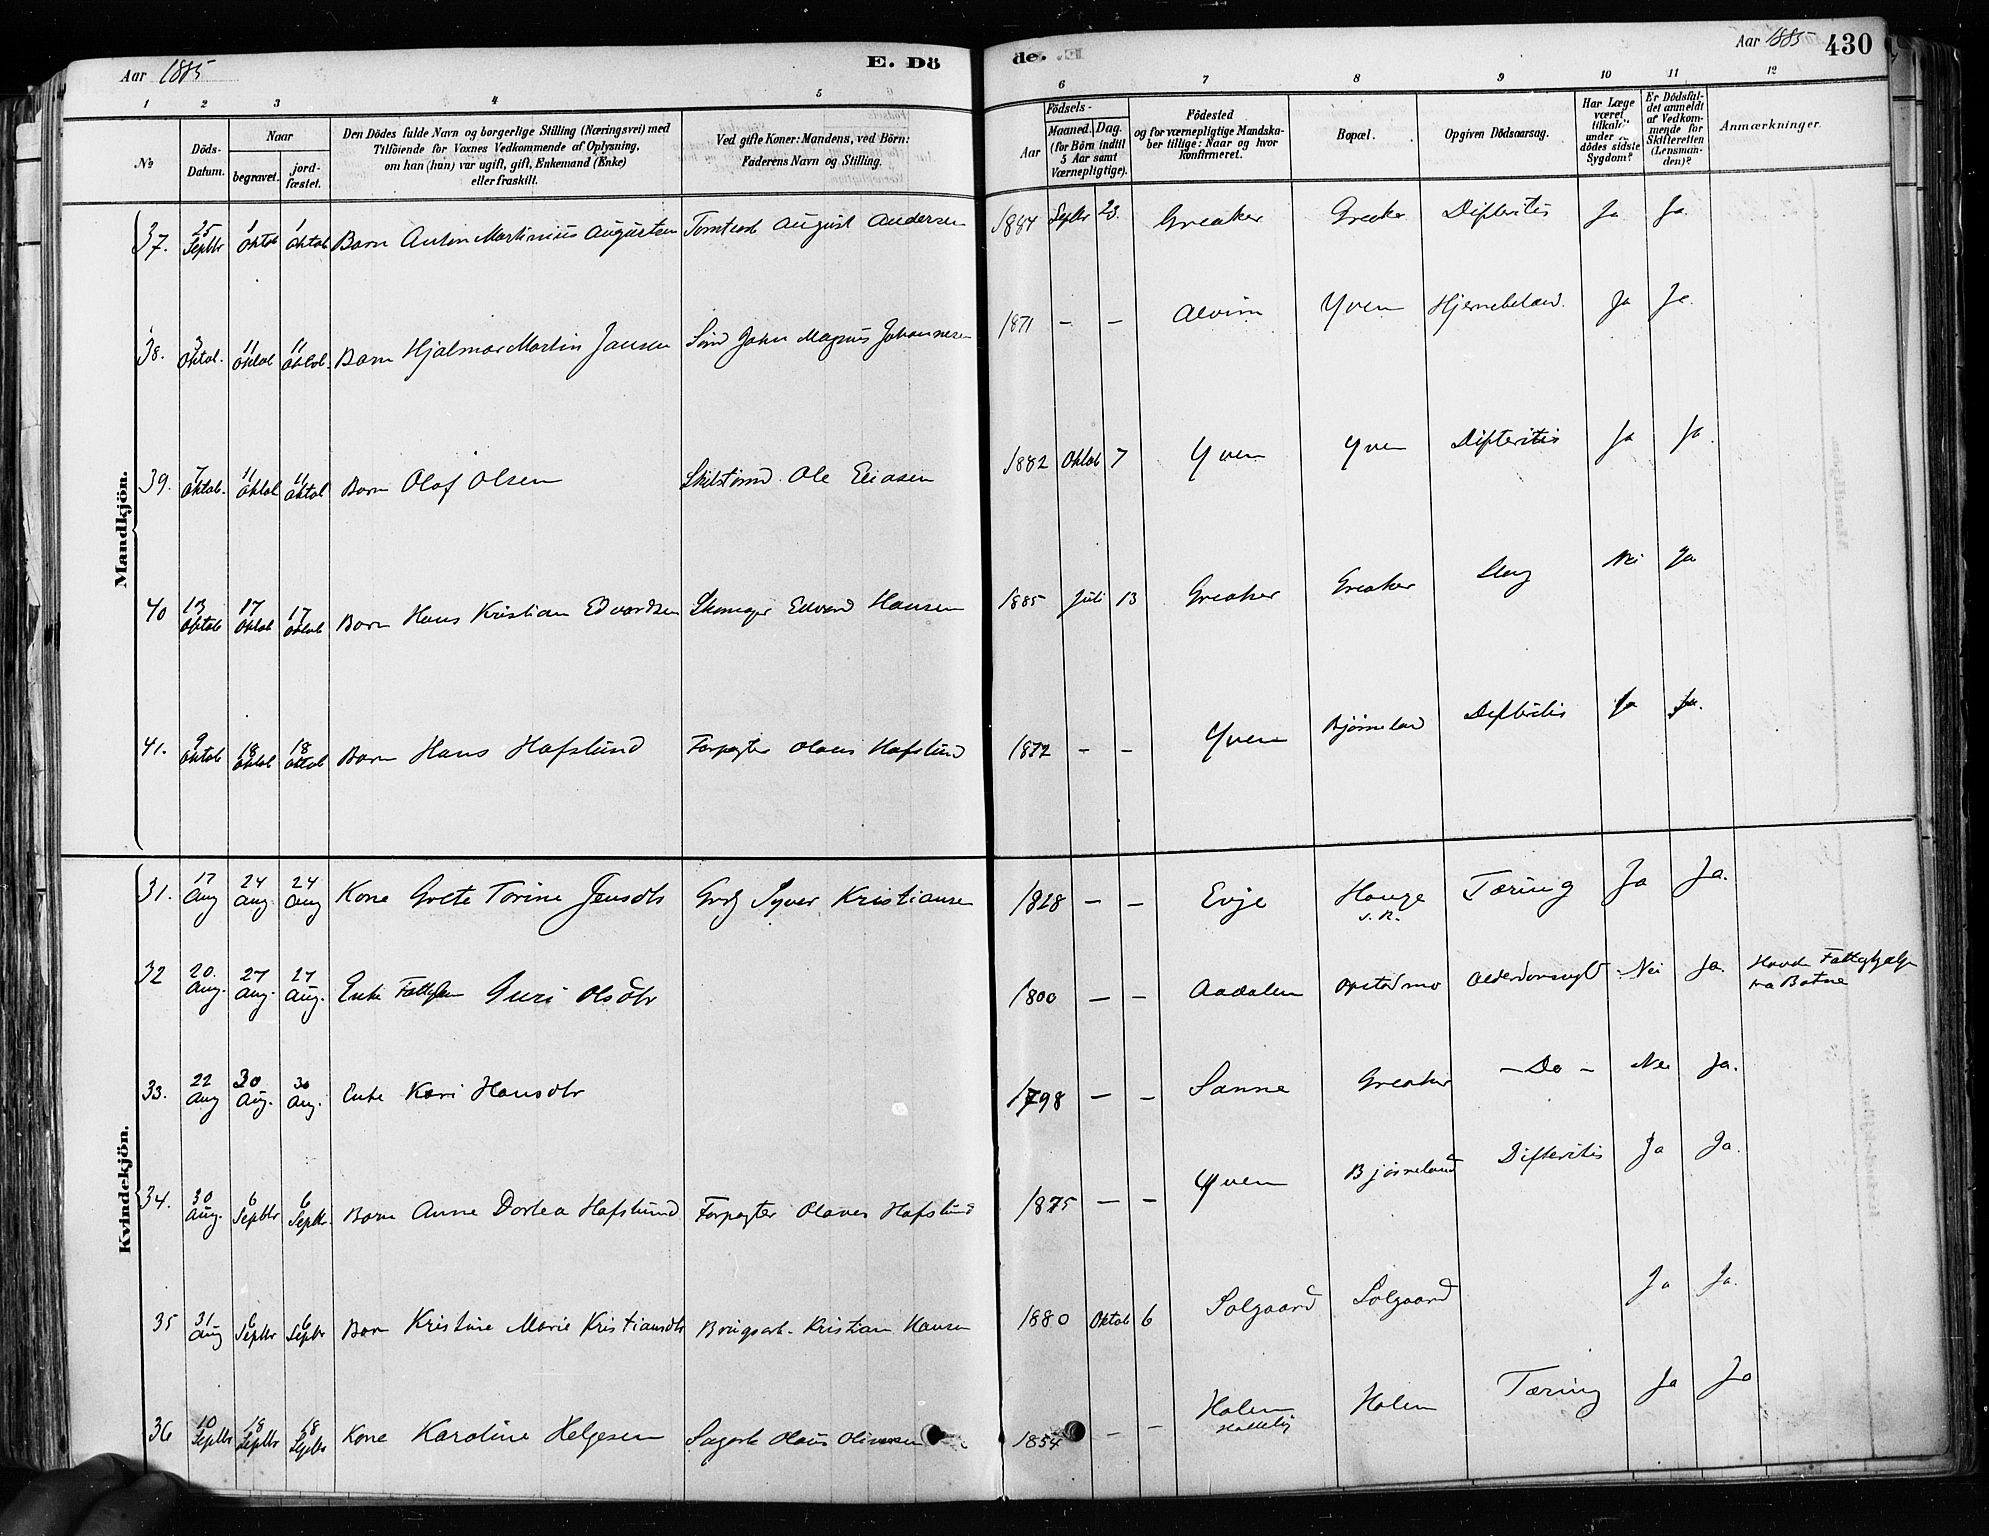 Aar 1885 E. Dö de. Aar 1885 430
1 2 3 4 5 6 7 8 9 10 11 12
No
Döds-Datum.
Naar
begravet.
jord-fæstet.
Den Dödes fulde Navn og borgerlige Stilling (Næringsvei) med
Tilföiende for Voxnes Vedkommende af Oplysning,
om han (hun) var ugift, gift, Enkemand (Enke)
eller fraskilt.
Ved gifte Koner: Mandens, ved Börn:
Faderens Navn og Stilling.
Födsels-
Aar
Maaned. Dag.
(for Börn indtil
5 Aar samt
Værnepligtige).
Födested
og for værnepligtige Mandska-
ber tillige: Naar og hvor
konfirmeret.
Bopæl.
Opgiven Dödsaarsag.
Har Læge
været
tilkaldt
under
dödes sidste
Sygdom?
Er Dödsfal-
det anmeldt
af Vedkom-
mende for
Skifteretten
(Lensman-
den)?
Anmærkninger.
Mandkjön.
37. 25 Septbr 1 Oktob 1 Oktob Barn Anton Martinius Augustsen Tomtearb August Andersen 1884 Septbr 23. Greaker Greaker Difteritis Ja Ja
38. 3 Oktob. 11 Oktob 11 Oktob. Barn Hjalmar Martin Jansen Smd John Magnus Johannesen 1871 – – Alvim Yven Hjernebetænd. Ja Ja.
39. 7 Oktob. 11 Oktob 11 Oktob Barn Olaf Olsen Ole Eliasen 1882 Oktob 7 Yven Yven Difteritis Ja Ja
40 13 Oktob 17 Oktob 17 Oktob Barn Hans Kristian Edvardsen Skomager Edvard Hansen 1885 Juli 13 Greaker Greaker Slag Nei Ja
41. 9 Oktob 18 Oktob 18 Oktob Barn Hans Hafslund Forpagter Olaus Hafslund 1872 – – Yven Bjørneland Difteritis Ja Ja.
Kvindekjön.
31. 17 Aug 24 Aug. 24 Aug Kone Grete Torine Jensdtr Grdb Syver Kristiansen 1828 – – Evje Hauge
s. R.
Tæring Ja Ja.
32 20. Aug. 27 Aug. 27 Aug. Enke Fattiglem Guri Olsdtr 1800 – – Aadalen Opstadmo Alderdomssvagh Nei Ja. Havde Fattighjælp
fra Botne
33. 22 Aug 30 Aug. 30 Aug. Enke Kari Hansdtr 1798 – – Sanne Greaker – Do – Nei Ja.
34. 30 Aug. 6 Septbr 6 Septbr. Barn Anne Dortea Hafslund Forpagter Olaves Hafslund 1875 – – Yven Bjørneland Difteritis Ja Ja.
35 31 Aug 6 Septbr 6 Septbr Barn Kristine Marie Kristiansdtr Brugsarb. Kristian Hansen 1880 Oktob 6 Solgaard Solgaard Ja Ja.
36 10 Septbr 18 Septbr 18 Septbr Kone Karoline Helgesen Sagarb Olaus Oliversen 1854 – – Holen Holen Tæring Ja Ja